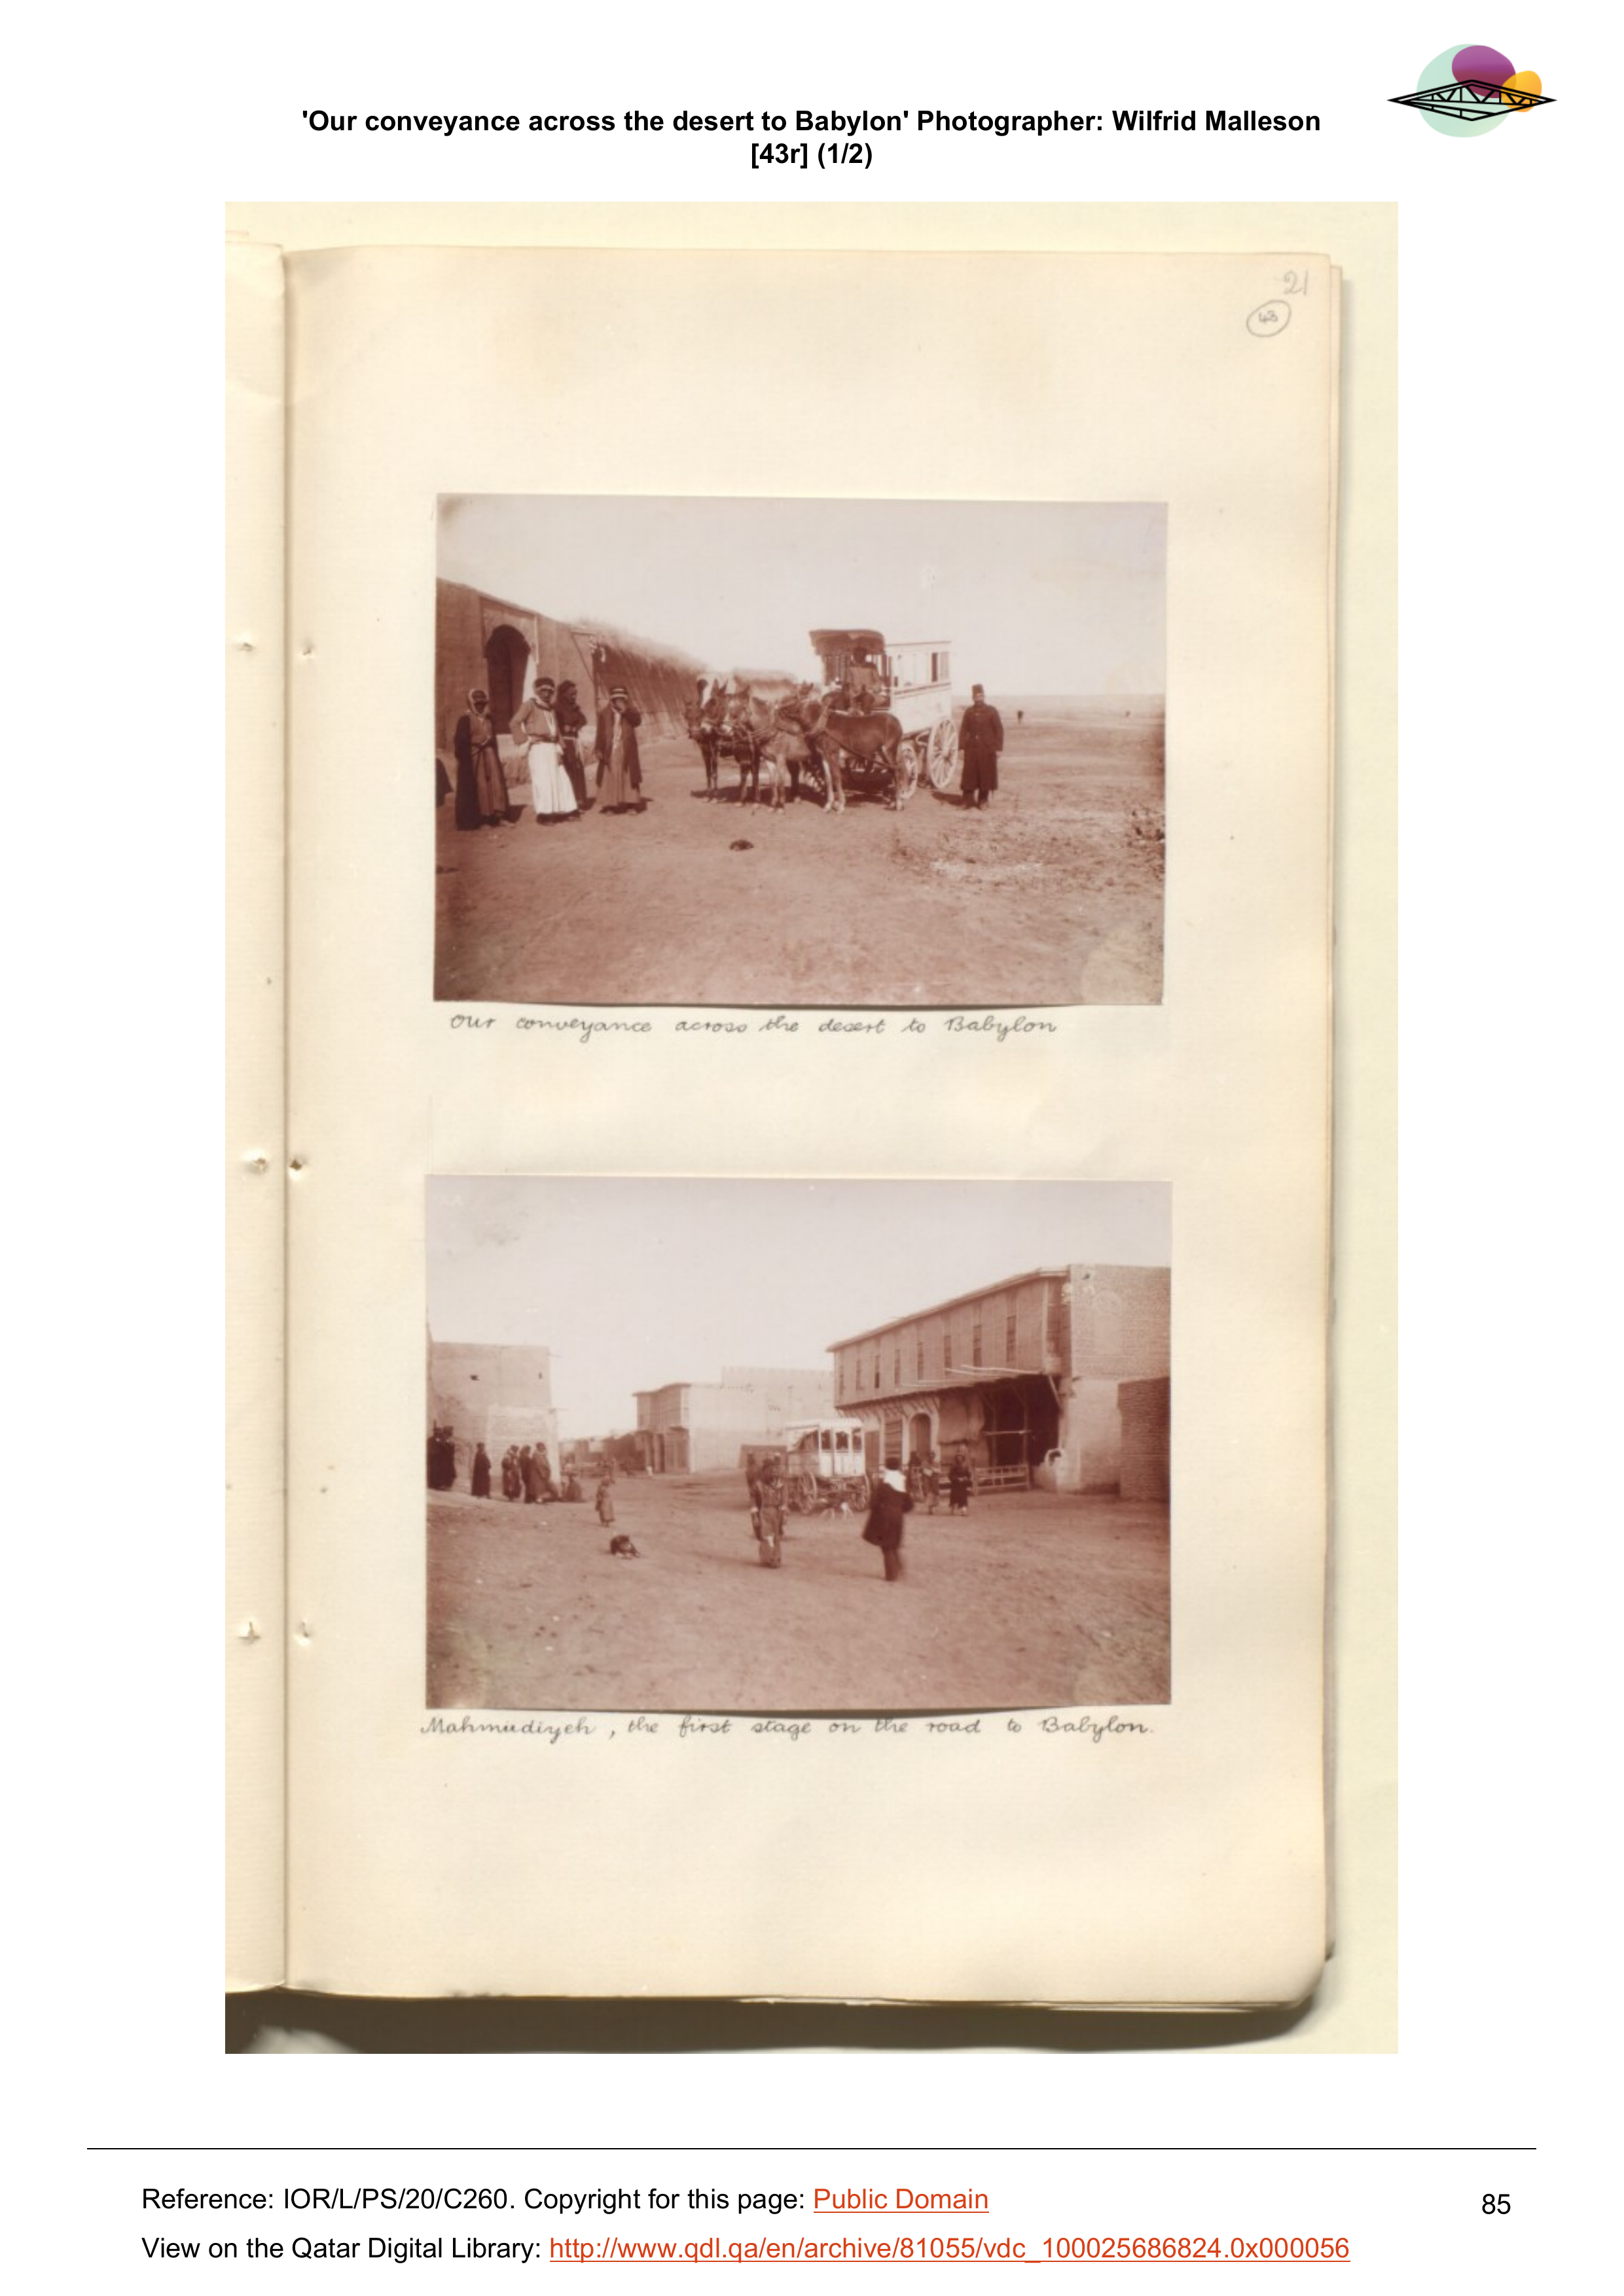 'Our conveyance across the desert to Babylon' Photographer: Wilfrid Malleson
[43r] (1/2)
21
43
Our conveyance across the desert to Babylon
Mahmudiyeh, the first stage on the road to Babylon.
Reference: IOR/L/PS/20/C260. Copyright for this page: Public Domain
View on the Qatar Digital Library: http://www.qdl.qa/en/archive/81055/vdc_100025686824.0x000056
85